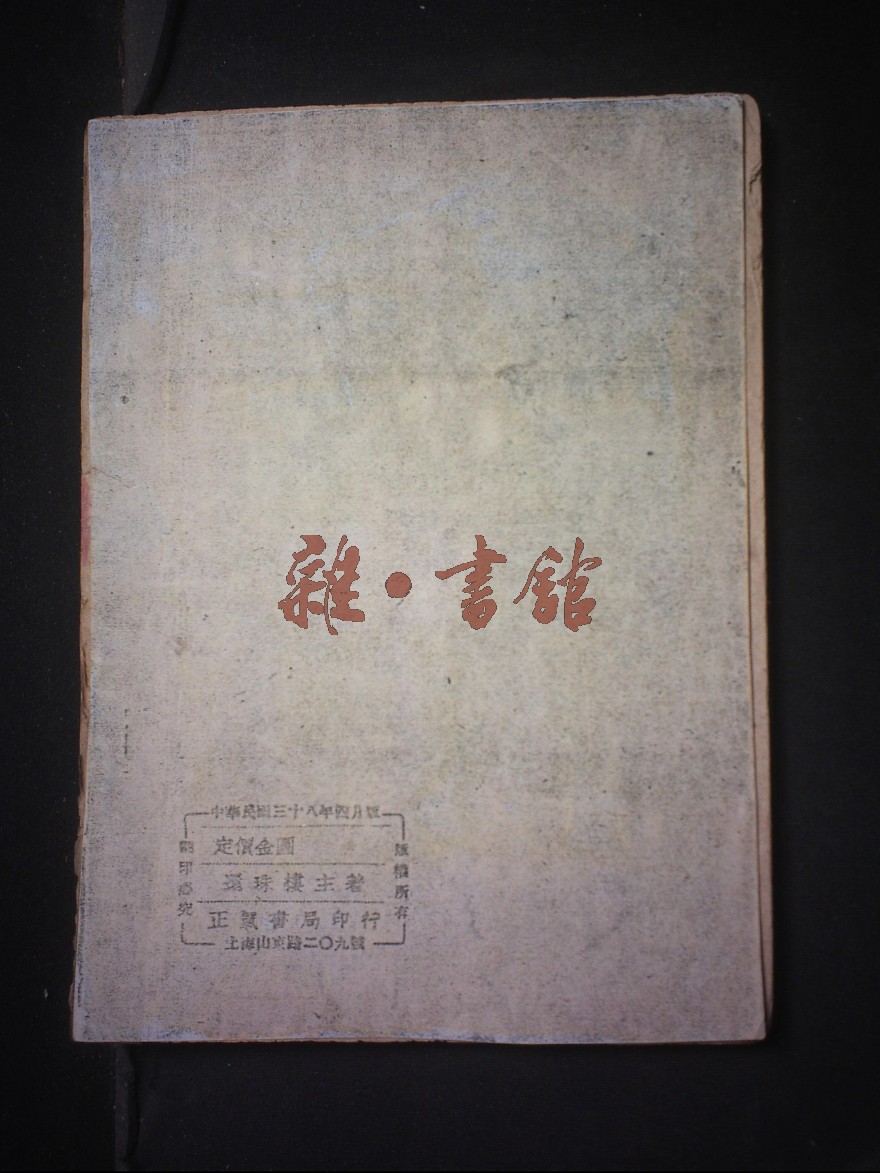 雜·書館
中華民國三十八年四月版
定價金圓
還珠樓主著
正氣書局印行
上海山東路二〇九號
版權所有
翻印必究